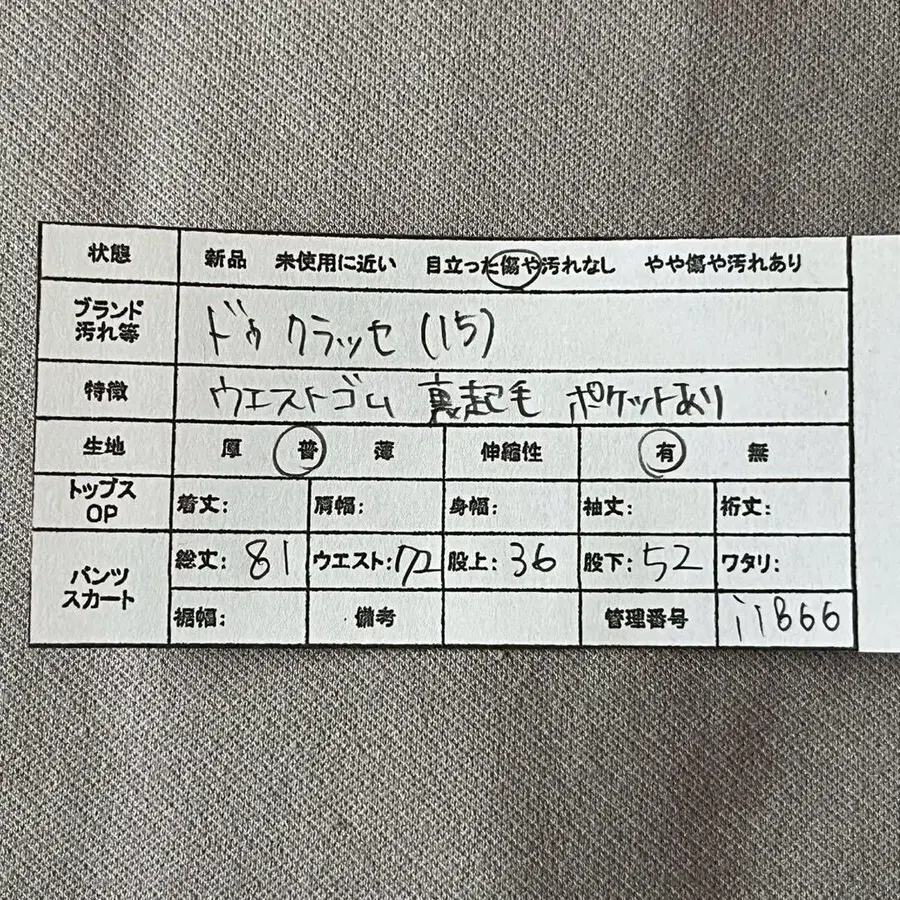 状態 新品 未使用に近い 目立った傷や汚れなし やや傷や汚れあり
ブランド
汚れ等 ドゥクラッセ (15)
特徴 ウエストゴム 裏起毛 ポケットあり
生地 厚 普 薄 伸縮性 有 無
トップス
OP 着丈: 肩幅: 身幅: 袖丈: 裄丈:
パンツ
スカート 総丈: 81 ウエスト: 72 股上: 36 股下: 52 ワタリ:
裾幅: 備考 管理番号 i1866